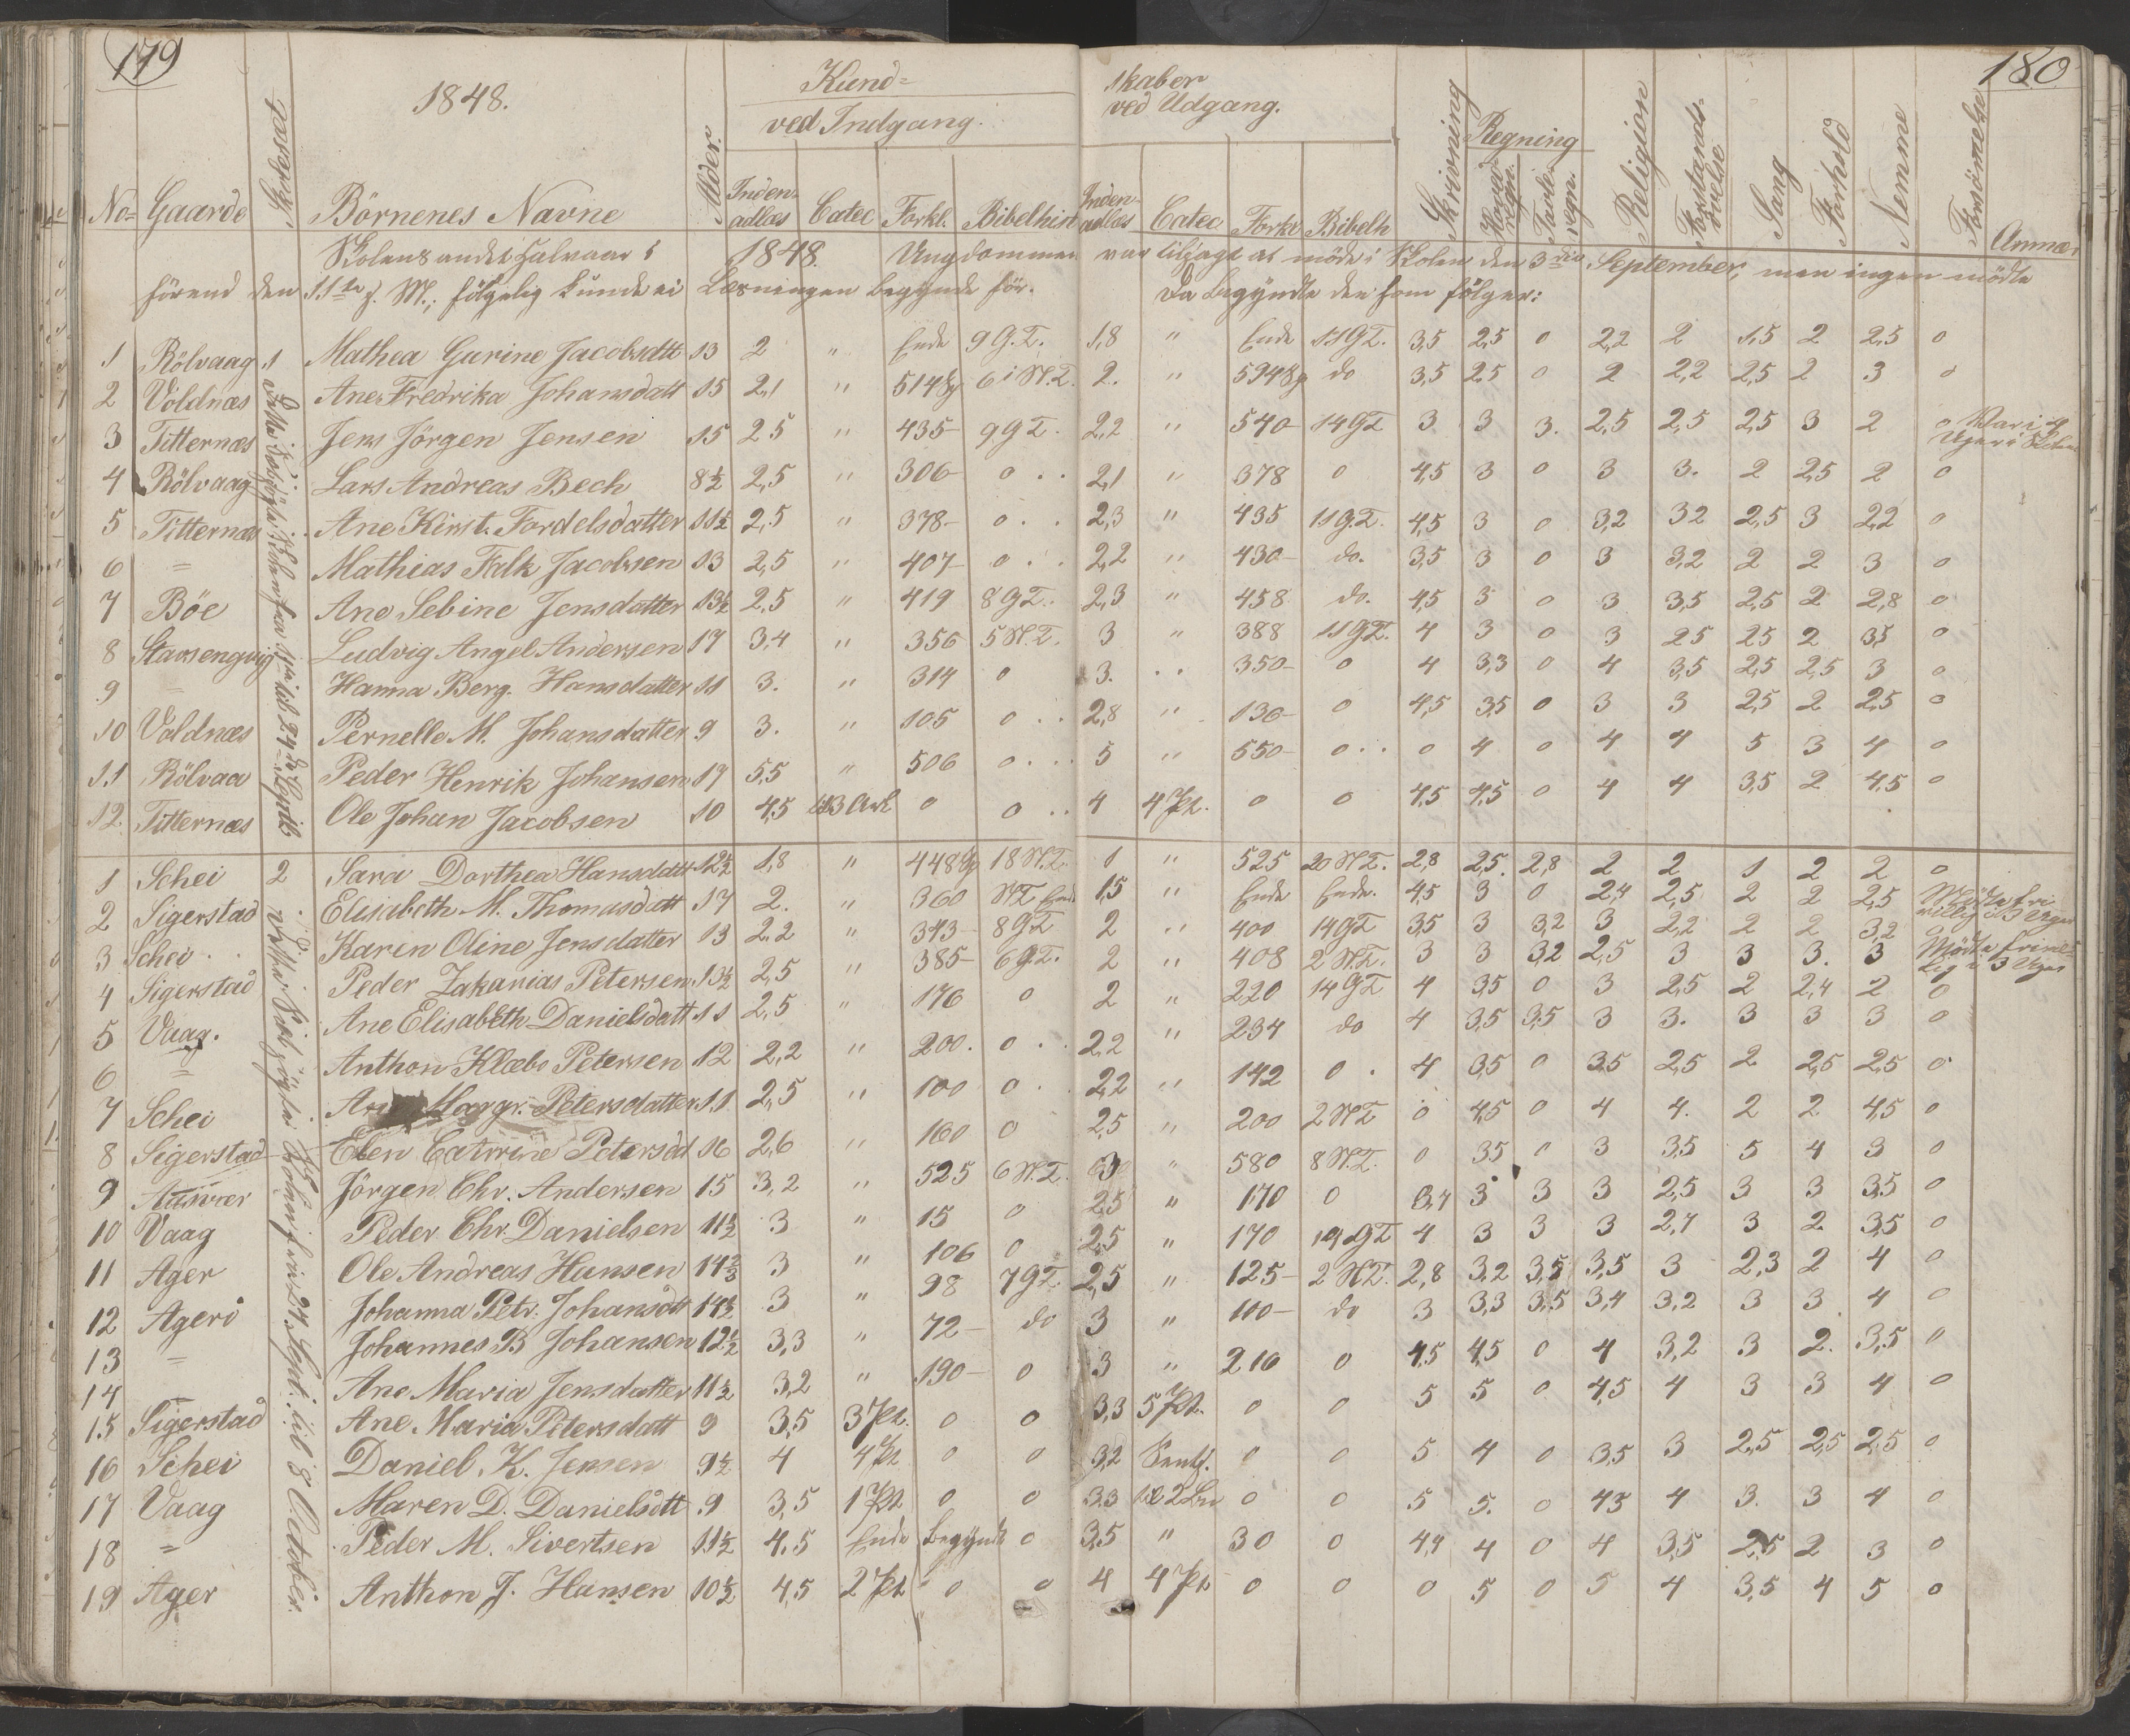 179
180
1848.
Kund=
skaber
ved Indgang.
ved Udgang.
No= Gaarde Börnenes Navne Alder. Inden- adlæs Catec Forkl. Bibelhist Inden- adlæs Catec Forkl Bibelh Skrivning Regning Hoved regn. Tavle regn. Religion Forstands- övelse Sang Forhold Nemme Forsömelse Anmær
Skolens andet Halvaar i 1848. Ungdommen var tilsagt at möde i Skolen den 3die September, men ingen mödte
förend den 11te s. M.; fölgelig kunde ei Læsningen begynde för. Da begyndte den som fölger:
1 Rölvaag 1 Mathea Gurine Jacobsdtt 13 2 " Ende 9 G.T. 1,8 " Ende 11 GT. 3,5 2,5 0 2,2 2 1,5 2 2,5 0
2 Völdnæs Ane Fredrika Johansdatt 15 2,1 " 514 6 i N.T. 2. " 594 do 3,5 2,5 0 2 2,2 2,5 2 3 0
3 Titternæs Jens Jörgen Jensen 15 2 5 " 435 9 GT. 2,2 " 540 14 GT 3 3 3. 2,5 2,5 2,5 3 2 0 Var i Uger i Skolen
4 Rölvaag Lars Andreas Bech 8½ 2,5 " 306 0 2,1 " 378 0 4,5 3 0 3 3. 2 2,5 2 0
5 Titternæs Ane Kirst. Fordelsdatter 11½ 2,5 " 378 0 2,3 " 435 11 G.T. 4,5 3 0 3,2 3 2 2,5 3 2,2 0
6 = Mathias Falk Jacobsen 13 2,5 " 407 0 2,2 " 430 do. 3,5 3 0 3 3,2 2 2 3 0
7 Böe Ane Sebine Jensdatter 13½ 2,5 " 419 8 GT. 2,3 " 458 do. 4,5 3 0 3 3,5 2,5 2 2,8 0
8 Stavsengvig Ludvig Angel Andersen 17 3,4 " 356 5 N.T. 3 " 388 11 GT. 4 3 0 3 2 5 2 5 2 3,5 0
9 = Hanna Berg. Hansdatter 11 3. " 314 0 3. " 350 0 4 3,3 0 4 3,5 2,5 2,5 3 0
10 Valdnæs Pernelle M. Johansdatter 9 3. " 105 0 2,8 " 130 0 4,5 3,5 0 3 3 2,5 2 2,5 0
11 Rölvaa Peder Henrik Johansen 17 5,5 " 506 0 5 " 550 0 0 4 0 4 4 5 3 4 0
12. Titternæs Ole Johan Jacobsen 10 4,5 3 Ark 0 0 4 4 Pt. 0 0 4,5 4,5 0 4 4 3,5 2 4,5 0
1 Schei 2 Sara Dorthea Hansdatt 12½ 1,8 " 448 18 N.T. 1 " 525 20 N.T. 2,8 2,5. 2,8 2 2 1 2 2 0
2 Sigerstad Elisabeth M. Thomasdatt 17 2. " 360 NT Ende 1,5 " Ende Ende. 4,5 3 0 2,4 2,5 2 2 2,5 Mödte fri villig i 3 Uger
3 Schei Karen Oline Jensdatter 13 2,2 " 343 8 GT 2 " 400 14 GT 3,5 3 3,2 3 2,2 2 2 3,2 0
4 Sigerstad Peder Zakarias Petersen 13½ 2,5 " 385 6 G.T. 2 " 408 2 N.T. 3 3 3,2 2,5 3 3 3. 3 Mödte frivil- lig i 3 Uger
5 Vaag. Ane Elisabeth Danielsdatt 11 2,5 " 176 0 2 " 220 14 GT 4 3,5 0 3 2,5 2 2,4 2 0
6 = Anthon Klæbo Petersen 12 2,2 " 200. 0 2,2 " 234 do 4 3,5 3,5 3 3. 3 3 3 0
7 Schei Margr. Petersdatter 11 2,5 " 100 0 2,2 " 142 0 4 3,5 0 3,5 2,5 2 2,5 2,5 0
8 Sigerstad Elen Catrine Petersdt 16 2,6 " 160 0 2,5 " 200 2 NT 0 4,5 0 4 4. 2 2 4,5 0
9 Ausvær Jörgen Chr. Andersen 15 3,2 " 525 6 N.T. 3 " 580 8 N.T. 0 3,5 0 3 3,5 5 4 3 0
10 Vaag Peder Chr. Danielsen 11½ 3 " 15 0 2,5 " 170 0 3,4 3 3 3 2,5 3 3 3,5 0
11 Ager Ole Andreas Hansen 14 3 " 106 0 2,5 " 170 14 GT 4 3 3 3 2,4 3 2 3,5 0
12 Ageri Johanna Petr. Johansdtt 14 3 " 98 7 GT. 2,5 " 125 2 N.T. 2,8 3,2 3,5 3,5 3 2,3 2 4 0
13 = Johannes B Johansen 12½ 3,3 " 72 do 3 " 100 do 3 3,3 3,5 3,4 3,2 3 3 4 0
14 = Ane Maria Jensdatter 11½ 3,2 " 190 0 3 " 210 0 4,5 4,5 0 4 3,2 3 2. 3,5 0
15 Sigerstad Ane Maria Petersdatt 9 3,5 3 Pt. 0 0 3,3 5 Pt. 0 0 5 5 0 4,5 4 3 3 4 0
16 Schei Daniel K. Jensen 9½ 4 4 Pt 0 0 3,2 0 0 5 4 0 3,5 3 2,5 2,5 2,5 0
17 Vaag Maren D. Danielsdtt 9 3,5 1 Pt 0 0 3,3 0 0 5 5. 0 4,5 4 3. 3 4 0
18 = Peder M. Sivertsen 11½ 4,5 Ende begynde 0 3,5 " 30 0 4,4 4 0 4 3,5 2,5 2 3 0
19 Ager Anthon J. Hansen 10½ 4,5 2 Pt 0 0 4 4 Pt 0 0 0 5 0 5 4 3,5 4 5 0